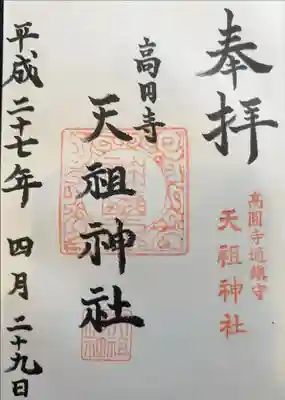 奉拝
高圓寺過鎮守
天祖神社
高円寺
天祖神社
平成二十七年 四月 二十九日